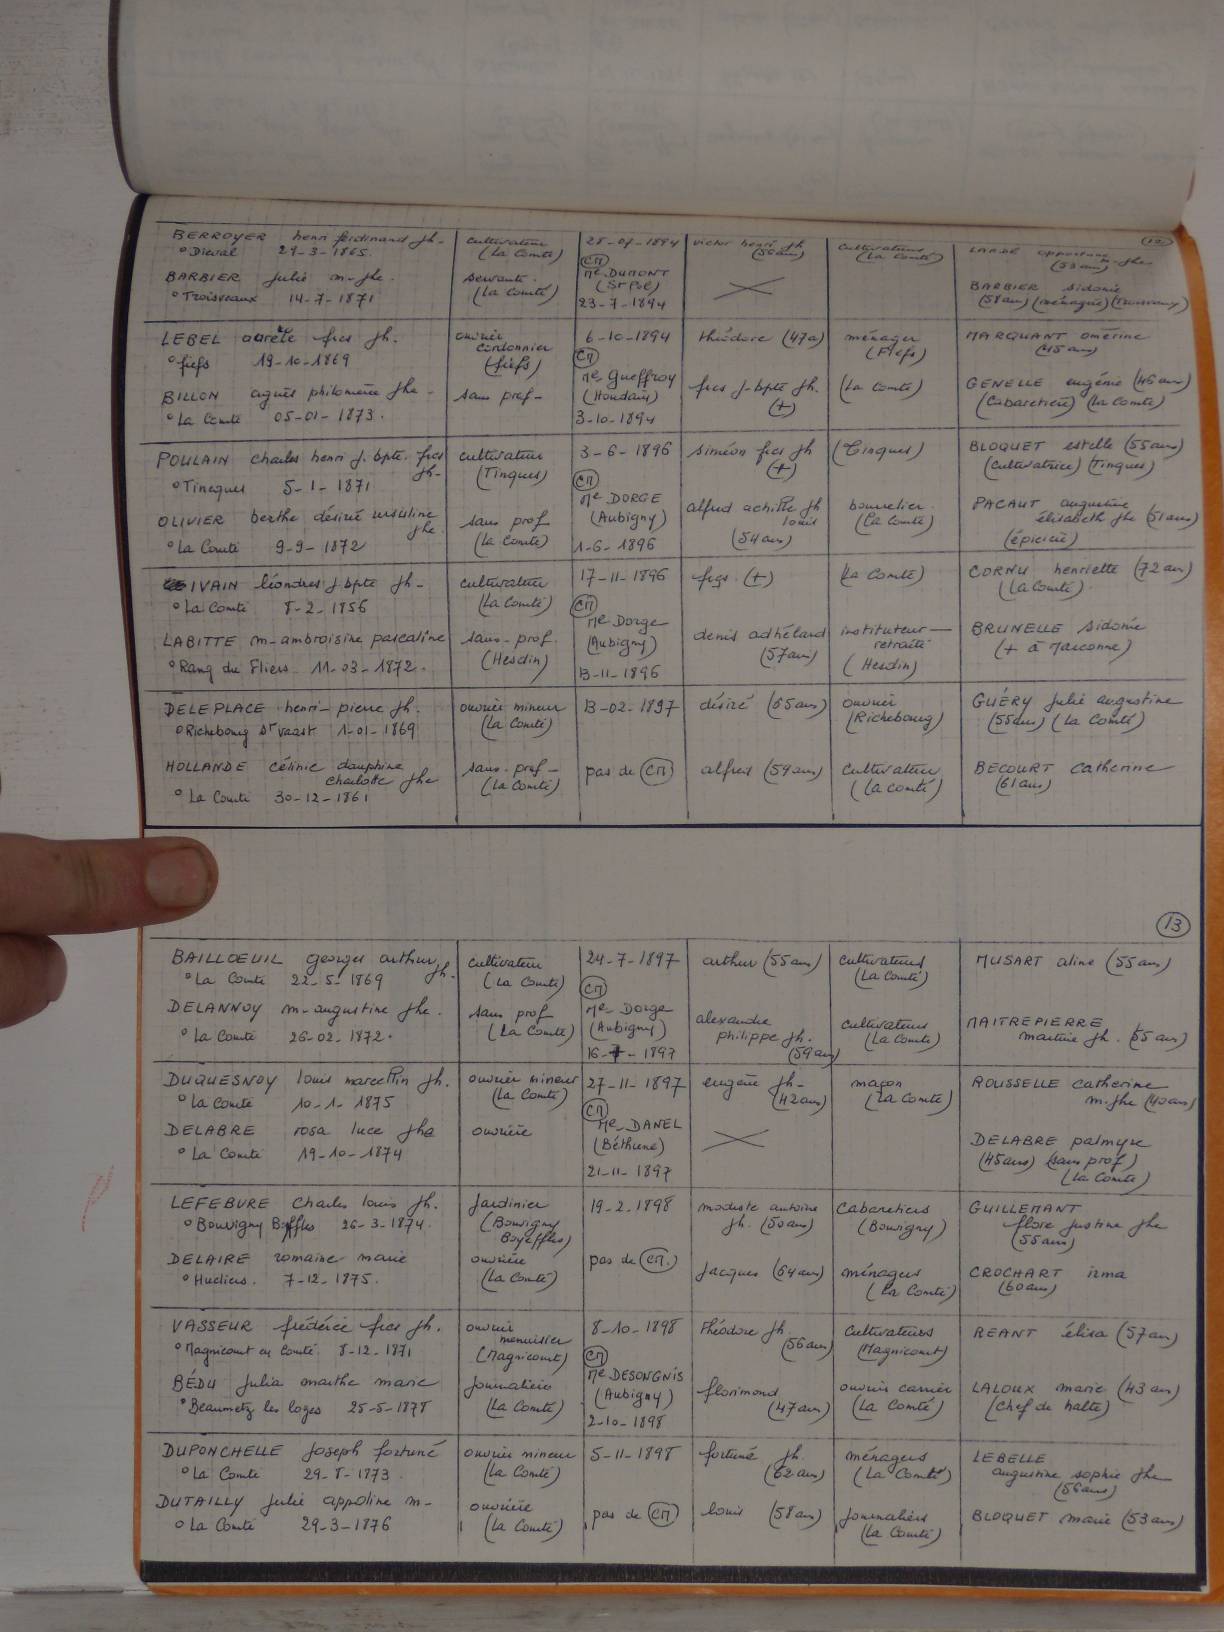 12
BERROYER henri ferdinand jh- cultivateur 28-07-1894 victor henri jh cultivateurs LANDE opportune m-jhe
° Dieval 29-3-1865 (La Comté) (CM) (56ans) (La Comté) (53 ans)
BARBIER Julie m-jhe. servante. Me DUMONT BARBIER sidonie
° Troisvaux 14-7-1871 (La Comté) (St Pol) (58 ans) (ménagère) (Troisvaux)
23-7-1894
LEBEL aurèle fics jh. ouvrier cordonnier 6-10-1894 théodore (47a) ménager MARQUANT omérine
° fiefs 19-10-1869 (fiefs) (CM) (Fiefs) (45 ans)
BILLON agnès philomène jhe- sans prof- Me Gueffroy fics j-bpte jh. (La Comté) GENELLE eugénie (46 ans)
° La Comté 05-01-1873. (Houdain) (+) (Cabaretière) (La Comté)
3-10-1894
POULAIN charles henri j. bpte fics jh- cultivateur 3-6-1896 siméon fics jh (Tinques) BLOQUET estelle (55 ans)
° Tincques 5-1-1871 (Tinques) (CM) (+) (Cultivatrice) (Tinques)
OLIVIER berthe désiré ursuline jhe. sans prof Me DORGE alfred achille jh louis bourrelier. PACAUT augustine élisabeth jhe (51 ans)
° La Comté 9-9-1872 (La Comté) (Aubigny) (54 ans) (La Comté) (épicière)
1-6-1896
IVAIN léondres j bpte jh- cultivateur 17-11-1896 fics. (+) (La Comté) CORNU henriette (72 ans)
° La Comté 8-2-1856 (La Comté) (CM) (La Comté)
LABITTE m-ambroisine pascaline sans-prof. Me Dorge denis adhéland instituteur- retraité BRUNELLE Sidonie
° Rang du Fliers 11-03-1872. (Hesdin) (Aubigny) (57 ans) (Hesdin) (+ à Marconne)
13-11-1896
DELEPLACE henri-pierre jh. ouvrier mineur 13-02-1897 désiré (65 ans) ouvrier GUÉRY Julie augustine
° Richebourg St vaast 1-01-1869 (La Comté) (Richebourg) (55 ans) (La Comté)
HOLLANDE célinie dauphine charlotte jhe sans-prof- pas de (CM) alfred (59 ans) Cultivateur BECOURT Catherine
° La Comté 30-12-1861 (La Comté) (La Comté) (61 ans)
13
BAILLOEUIL georges arthur jh. cultivateur 24-7-1897 arthur (55 ans) cultivateurs MUSART aline (55 ans)
° La Comté 22-5-1869 (La Comté) (CM) (La Comté)
DELANNOY m-augustine jhe. sans prof Me Dorge alexandre philippe jh. cultivateurs MAITREPIERRE
° La Comté 26-02-1872. (La Comté) (Aubigny) (59 ans) (La Comté) martine jh. (55 ans)
16-7-1897
DUQUESNOY louis marcellin jh. ouvrier mineur 27-11-1897 eugène jh- maçon ROUSSELLE catherine
° La Comté 10-1-1875 (La Comté) (CM) (42 ans) (La Comté) m-jhe (40 ans)
DELABRE rosa luce jhe ouvrière Me DANEL DELABRE palmyre
° La Comté 19-10-1874 (Béthune) (45 ans) (sans prof)
21-11-1897 (La Comté)
LEFEBVRE Charles louis jh. Jardinier 19-2-1898 modeste antoine Cabaretiers GUILLEMANT
° Bouvigny Boyeffles 26-3-1874. (Bouvigny Boyeffles) jh. (50 ans) (Bouvigny) flore justine jhe (55 ans)
DELAIRE romaine marie ouvrière pas de (CM.) Jacques (64 ans) ménagers CROCHART irma
° Huclier. 7-12-1875. (La Comté) (La Comté) (60 ans)
VASSEUR frédéric fics jh. ouvrier menuisier 8-10-1898 théodore jh cultivateurs REANT élisa (57 ans)
° Magnicourt en Comté 8-12-1871 (Magnicourt) (CM) (56 ans) (Magnicourt)
BÉDU Julia marthe marie Journalière Me DESONGNIS florimond ouvrier carrier LALOUX marie (43 ans)
° Beaumetz les loges 25-5-1878 (La Comté) (Aubigny) (47 ans) (La Comté) (Chef de halte)
2-10-1898
DUPONCHELLE Joseph fortuné ouvrier mineur 5-11-1898 fortuné jh. ménagers LEBELLE
° La Comté 29-8-1873. (La Comté) (62 ans) (La Comté) augustine sophie jhe (56 ans)
DUTAILLY Julie appoline m- ouvrière pas de (CM) louis (58 ans) Journaliers BLOQUET marie (53 ans)
° La Comté 29-3-1876 (La Comté) (La Comté)